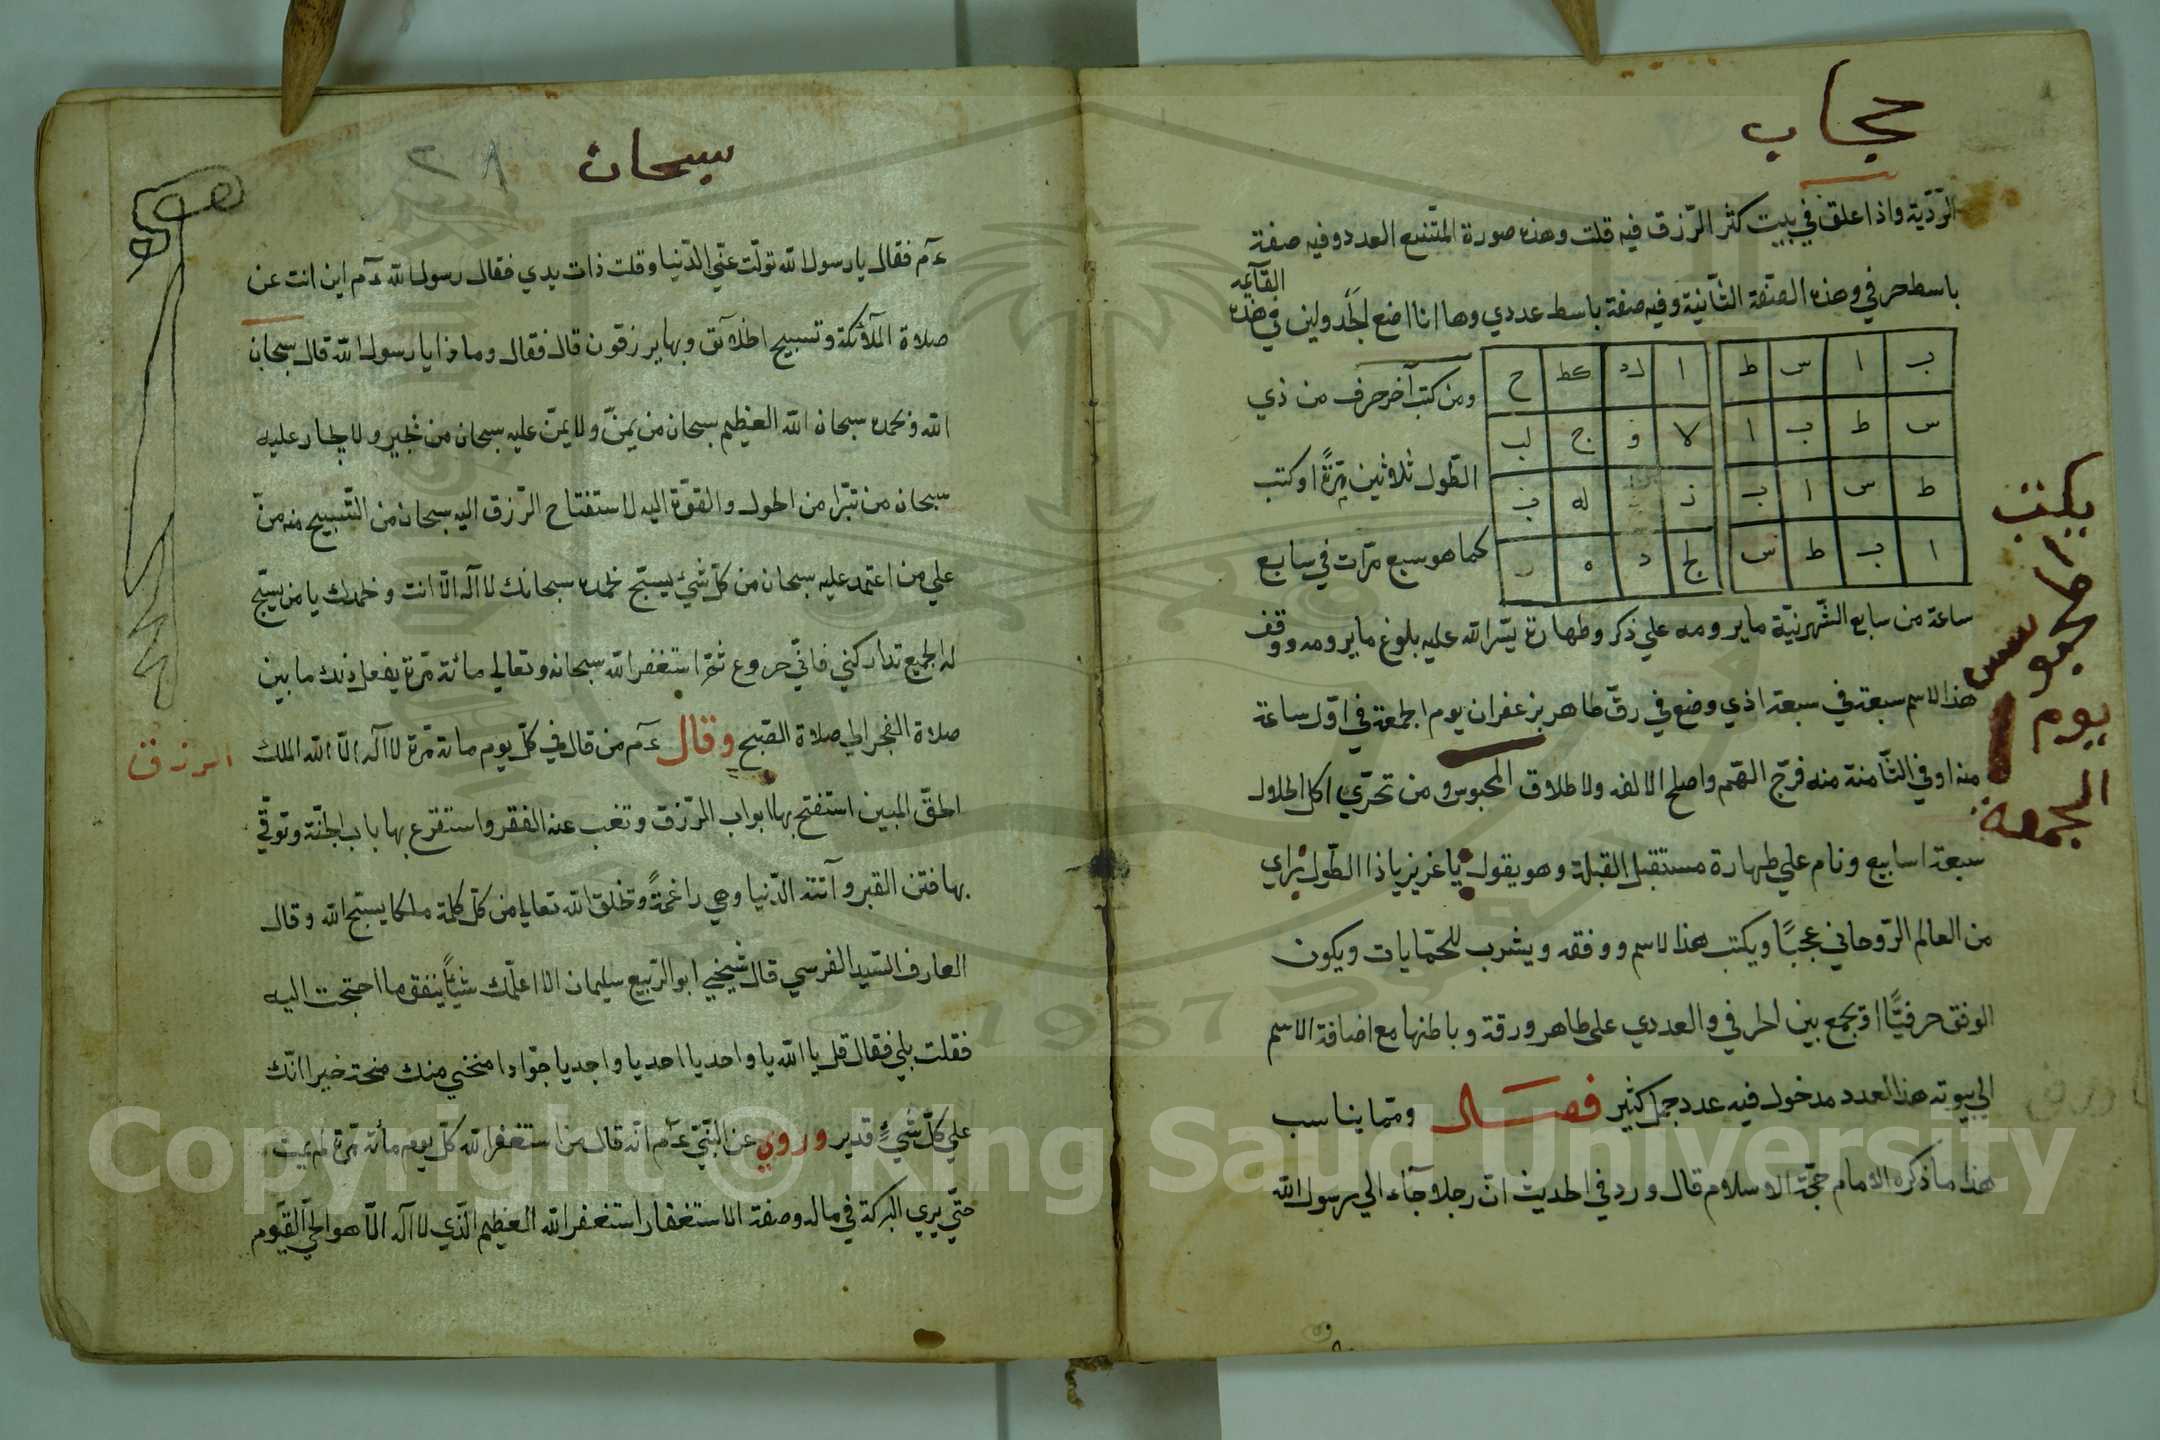 حجاب
الرّديّة واذا علق في بيت كثر الرّزق فيه قلت وهذه صورة المتّسع العدد وفيه صفة
باسط حرفي وهذه الصّفة الثّانية وفيه صفة باسط عددي وها انا اضع الجدولين في هذه
القآيمه
ب ا س ط ا لد كط ح
س ط ب ا لا و ج لب
ط س ا ب ز له ب
ا ب ط س لج د ه
ومن كتب آخر حرف من ذي
الطّول ثلاثين مرّةً او كتب
كما هو سبع مرّات في سابع
ساعة من سابع الشّهر بنيّة ما يرومه علي ذكر وطهارة يسّر الله عليه بلوغ ما يرومه ووقف
هذا الاسم سبعة في سبعة اذي وضع في رقّ طاهر بزعفران يوم الجمعة في اوّل ساعة
منه او في الثّامنة منه فرّج الهّم واصلح الالفه ولاطلاق المحبوس ومن تحرّي اكل الحلال
سبعة اسابيع ونام علي طهارة مستقبل القبلة وهو يقول يا عزيز يا ذا الطّول يراي
من العالم الرّوحاني عجبًا ويكتب هذا لاسم ووفقه ويشرب للحمّايات ويكون
الوفق حرفيًّا او يجمع بين الحرفي والعددي علي ظاهر ورقة وباطنها مع اضافة الاسم
الي بيوته هذا العدد مدخول فيه عدد جمل كثير فصال وممّا يناسب
هذا ما ذكره الامام حجّة الاسلام قال ورد في الحديث انّ رجلا جآء الي رسول الله
يكتب
المحبوس
يوم
الجمعة
سبحان
٢٨
ءم فقال يا رسول الله تولّت عنّي الدّنيا وقلت ذات يدي فقال رسول الله ءم اين انت عن
صلاة الملآئكة وتسبيح الخلآئق وبها يرزقون قال فقال وماذا يا رسول الله قال سبحان
الله وبحمده سبحان الله العظيم سبحان من يمنّ ولا يمنّ عليه سبحان من يجير ولا يجار عليه
سبحان من تبّرا من الحول والقوّة اليه لاستفتاح الرّزق اليه سبحان من التّسبيح منه منّ
علي من اعتمد عليه سبحان من كلّ شئ يسبّح بحمده سبحانك لا آله الّا انت وبحمدك يا من يسبّح
له الجميع تداركني فانّي جزوع ثمّ استغفر الله سبحانه وتعالي مائة مرّة يفعل ذلك ما بين
صلاة الفجر الي صلاة الصّبح وقال ءم من قال في كلّ يوم مائة مرّة لا آله الّا الله الملك
الرزق
الحقّ المبين استفتح بها ابواب الرّزق وتغب عنه الفقر واستقرع بها باب الجنّة وتوقّي
بها فتن القبر وآتته الدّنيا وهي راغمةً وخلق الله تعالي من كلّ كلمة ملكا يسبّح الله وقال
العارف السّيد الفرسي قال شيخي ابو الرّبيع سليمان الا اعلّمك شيأً ينفق ما احتجت اليه
فقلت بلي فقال قل يا الله يا واحد يا احد يا واجد يا جوّاد امنحني منك منحة خير انّك
علي كلّ شيءٍ قدير وروي عن النّبيّ ءم انه قال من استغفر الله كلّ يوم مائة مرّة لم يمت
حتّي يري البركة في ماله وصفة الاستغفار استغفر الله العظيم الّذي لا آله الّا هو الحيّ القيّوم
1957
Copyright © King Saud University